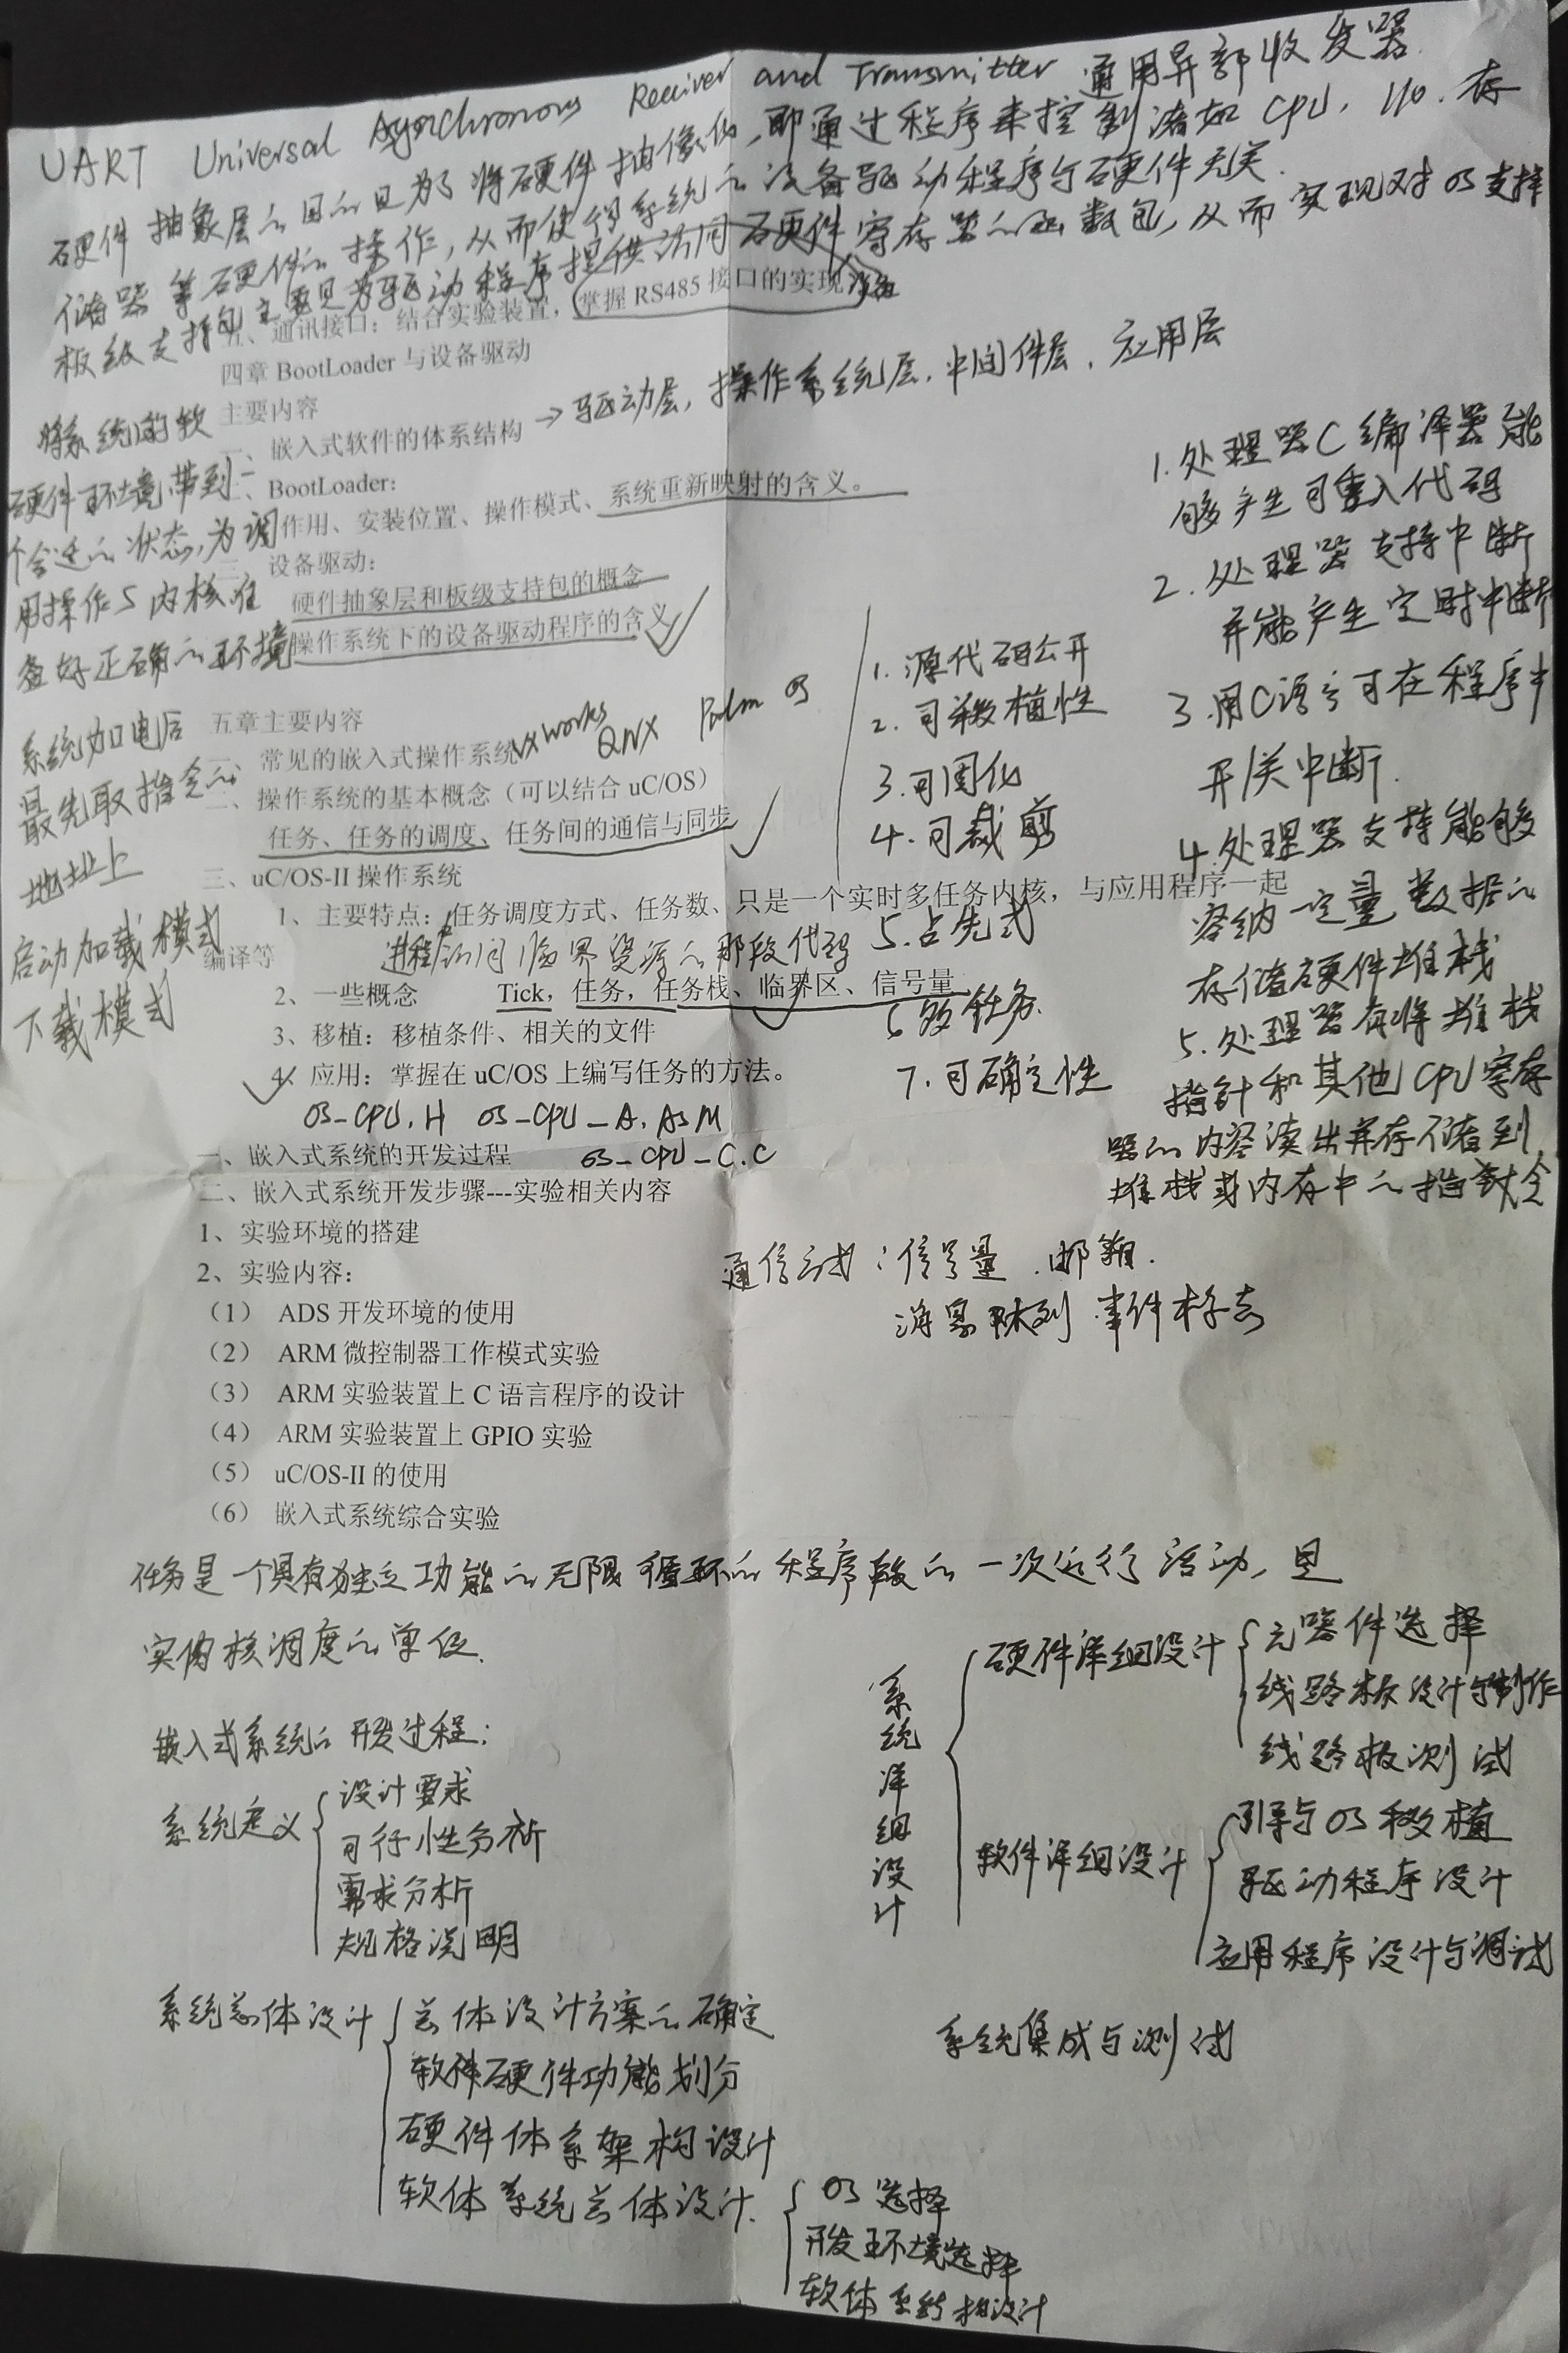 UART Universal Asynchronous Receiver and Transmitter 通用异部收发器
硬件抽象层的目的是为了将硬件抽像化,即通过程序来控制诸如CPU, I/O. 存
储器等硬件的操作,从而使得系统的设备驱动程序与硬件无关.
板级支持包主要是为驱动程序提供访问硬件寄存器的函数包,从而实现对OS支持
五、通讯接口:结合实验装置,掌握 RS485 接口的实现
四章 BootLoader 与设备驱动
主要内容
一、嵌入式软件的体系结构 → 驱动层, 操作系统层. 中间件层. 应用层
二、BootLoader:
作用、安装位置、操作模式、系统重新映射的含义。
三、设备驱动:
硬件抽象层和板级支持包的概念
操作系统下的设备驱动程序的含义
将系统的软
硬件环境带到一
个合适的状态,为调
用操作S内核准
备好正确的环境
系统加电后
最先取指令的
地址上
启动加载模式
下载模式
五章主要内容
一、常见的嵌入式操作系统 VxWorks QNX Palm OS
二、操作系统的基本概念(可以结合 uC/OS)
任务、任务的调度、任务间的通信与同步
三、uC/OS-II 操作系统
1、主要特点:任务调度方式、任务数、只是一个实时多任务内核,与应用程序一起
编译等
进程访问临界资源的那段代码
2、一些概念 Tick,任务,任务栈、临界区、信号量
3、移植:移植条件、相关的文件
4、应用:掌握在 uC/OS 上编写任务的方法。
OS-CPU.H OS-CPU-A.ASM
OS-CPU-C.C
1. 源代码公开
2. 可移植性
3. 可固化
4. 可裁剪
5. 占先式
6 多任务.
7. 可确定性
1. 处理器C编译器能
够产生可重入代码
2. 处理器支持中断
并能产生定时中断
3. 用C语言可在程序中
开/关中断.
4. 处理器支持能够
容纳一定量数据的
存储硬件堆栈
5. 处理器有将堆栈
指针和其他CPU寄存
器的内容读出并存储到
堆栈或内存中的指令
一、嵌入式系统的开发过程
二、嵌入式系统开发步骤---实验相关内容
1、实验环境的搭建
2、实验内容:
(1) ADS 开发环境的使用
(2) ARM 微控制器工作模式实验
(3) ARM 实验装置上 C 语言程序的设计
(4) ARM 实验装置上 GPIO 实验
(5) uC/OS-II 的使用
(6) 嵌入式系统综合实验
通信方式:信号量. 邮箱.
消息队列 事件标志
任务是一个具有独立功能的无限循环的程序段的一次运行活动,是
实内核调度的单位.
嵌入式系统的开发过程:
系统定义
设计要求
可行性分析
需求分析
规格说明
系统总体设计
总体设计方案的确定
软件硬件功能划分
硬件体系架构设计
软体系统总体设计.
OS选择
开发环境选择
软体系统构设计
系统详细设计
硬件详细设计
元器件选择
线路板设计与制作
线路板测试
软件详细设计
引导与OS移植
驱动程序设计
应用程序设计与调试
系统集成与测试